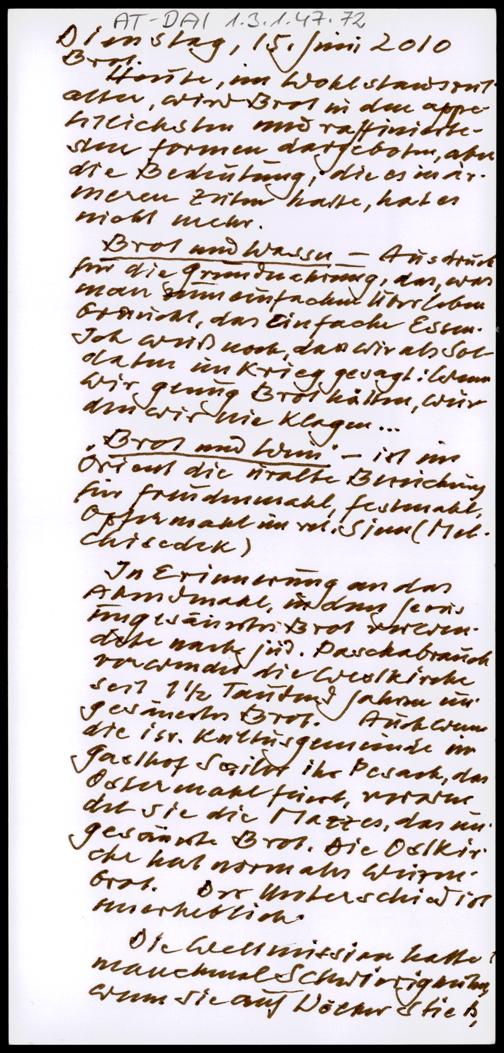 AT-DAI 1.3.1.47.72
Dienstag, 15. Juni 2010
Brot.
Heute, im Wohlstandszeit-
alter, wird Brot in den appe-
titlichsten und raffinierte-
sten Formen dargeboten, aber
die Bedeutung, die es in är-
meren Zeiten hatte, hat es
nicht mehr.
Brot und Wasser – Ausdruck
für die Grundnahrung, das, was
man zum einfachen Überleben
braucht, das Einfache Essen.
Ich weiß noch, dass wir als Sol-
daten im Krieg gesagt: Wenn
wir genug Brot hätten, wür
den wir nie klagen...
„Brot und Wein" – ist im
Orient die uralte Bezeichnung
für Freudenmahl, Festmahl,
Opfermahl im rel. Sinn (Mel-
chisedek)
In Erinnerung an das
Abendmahl, in dem Jesus
ungesäuertes Brot verwen-
dete nach jüd. Paschabrauch
verwendet die Westkirche
seit 1 1/2 Tausend Jahren un-
gesäuertes Brot. Auch wenn
die isr. Kultusgemeinde im
Gasthof Sailer ihr Pesach, das
Ostermahl feiert, verwen
det sie die Mazzes, das un-
gesäuerte Brot. Die Ostkir-
che hat normales Weizen-
brot. Der Unterschied ist
unerheblich.
Die Weltmission hatte
manchmal Schwierigkeiten,
wenn sie auf Völker stieß,